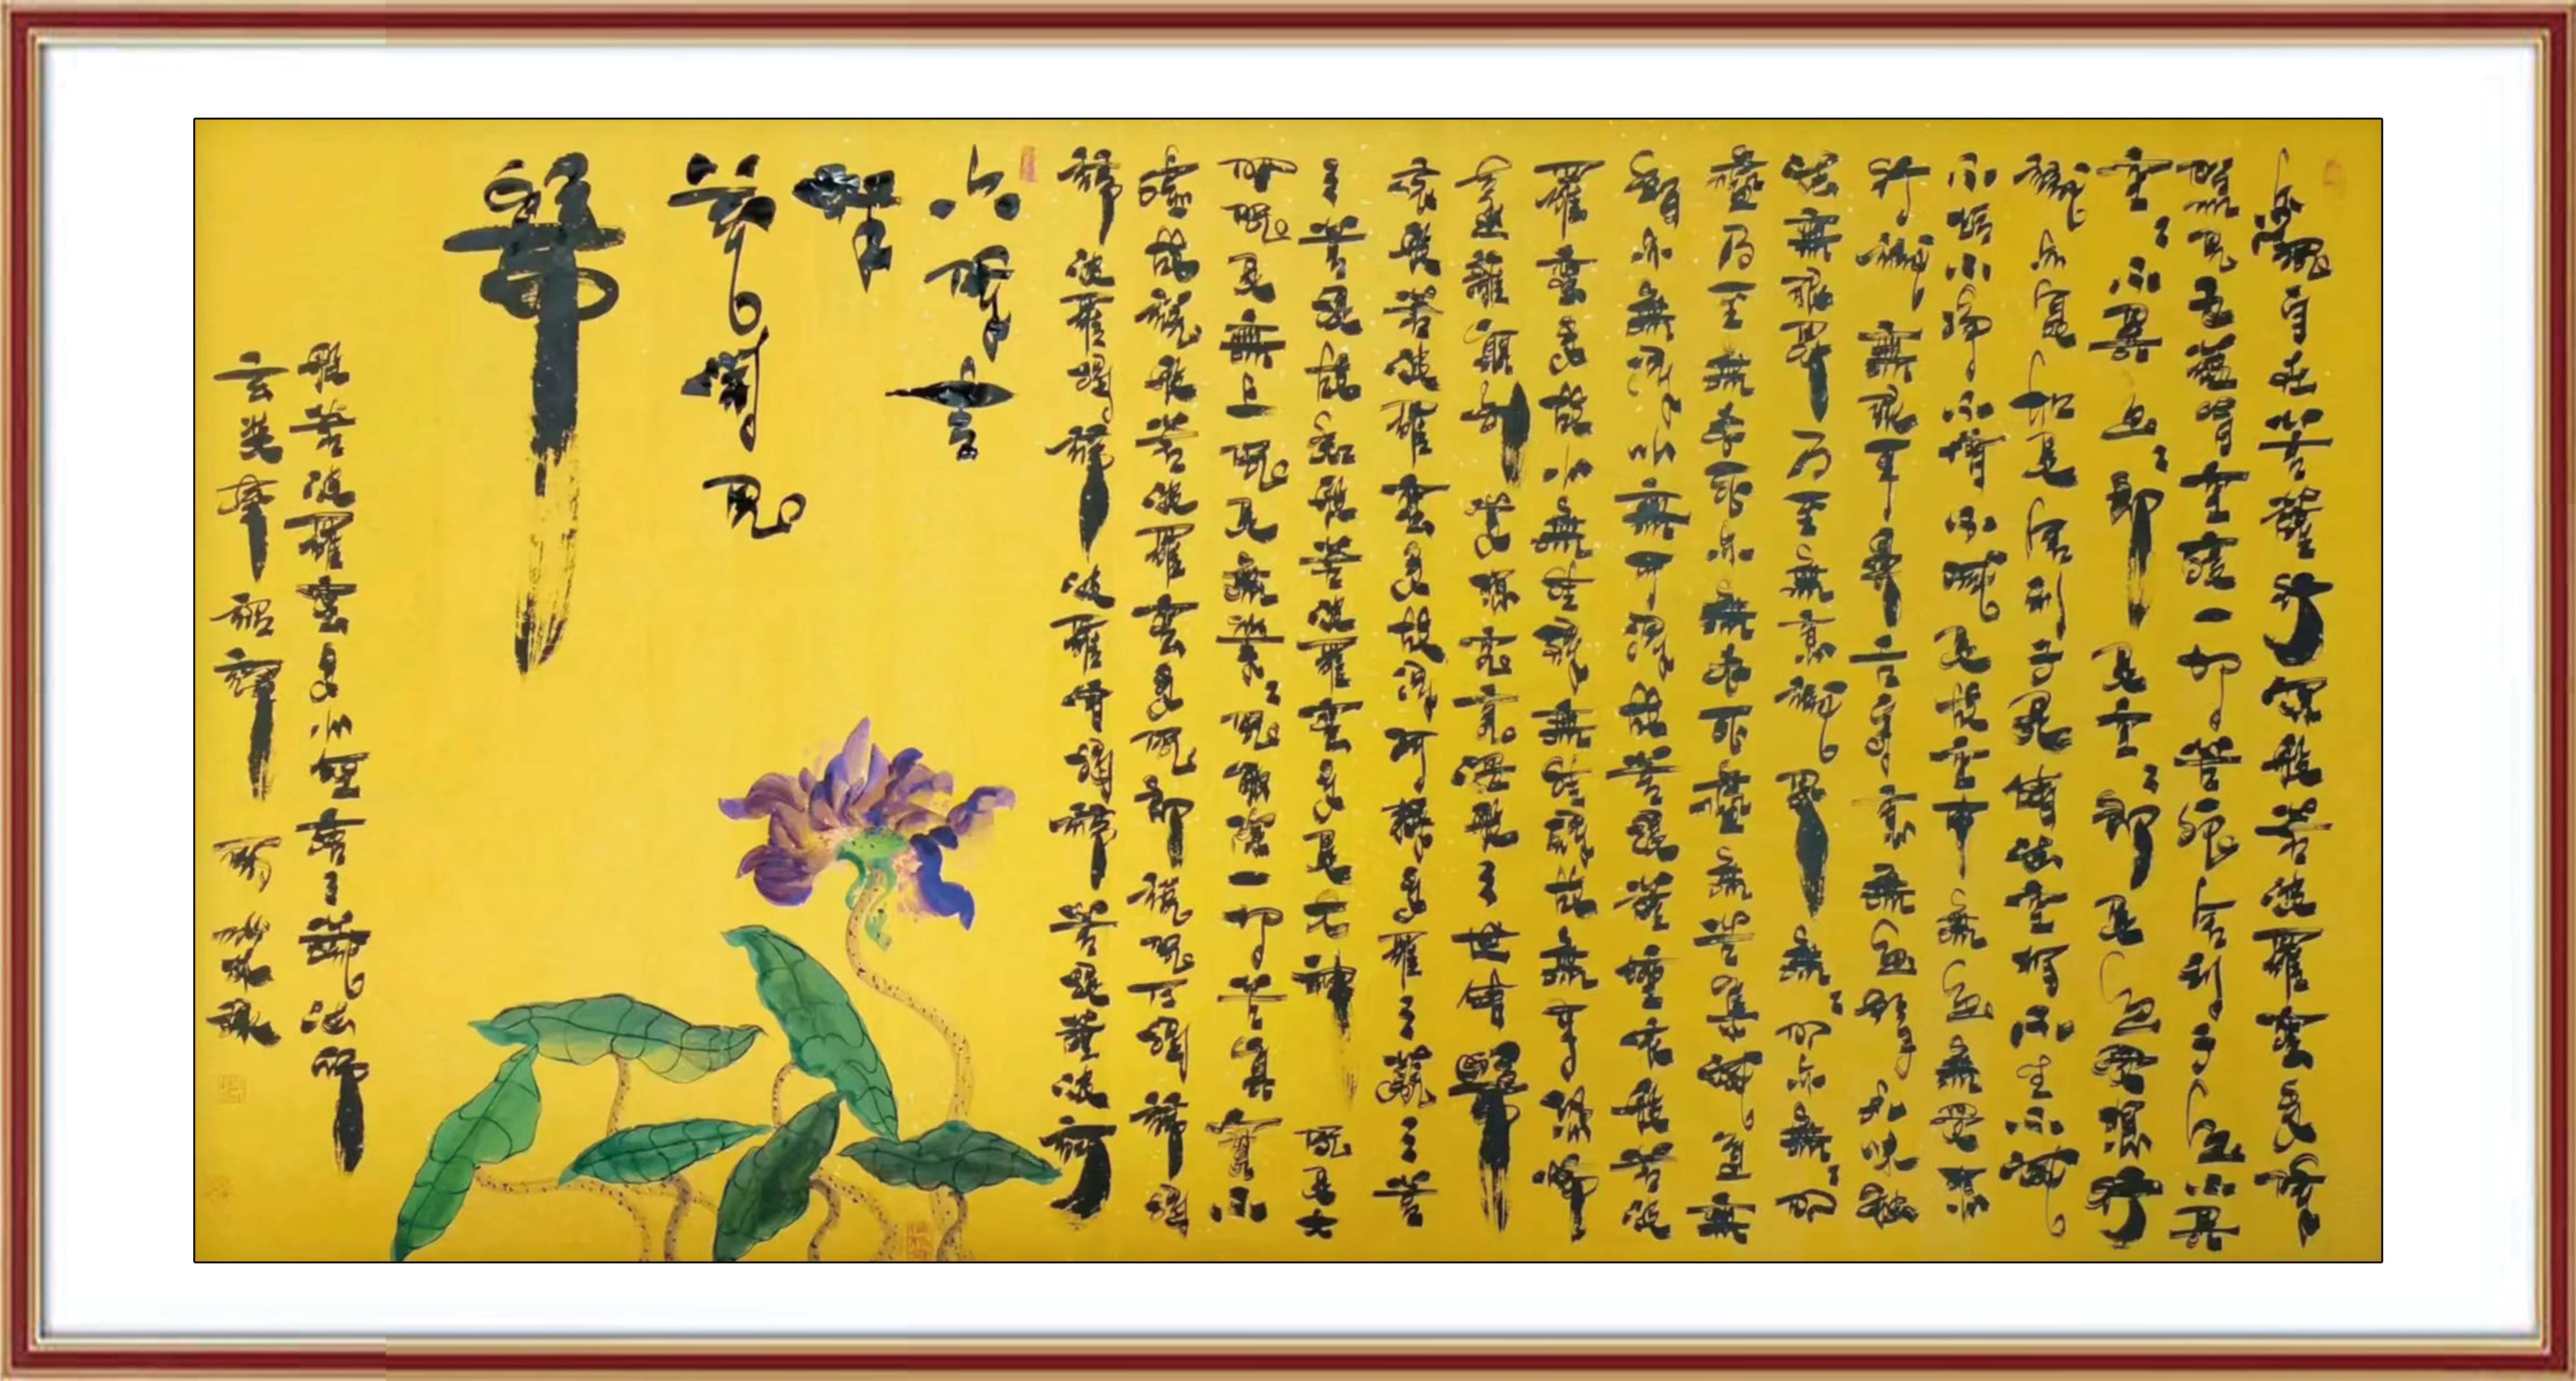 觀自在菩薩行深般若波羅蜜多時
照見五蘊皆空度一切苦厄舍利子色不異
空々不異色々即是空々即是色受想行
識亦復如是舍利子是諸法空相不生不滅
不垢不淨不增不減是故空中無色無受想
行識無眼耳鼻舌身意無色聲香味觸
法無眼界乃至無意識界無々明亦無々明
盡乃至無老死亦無老死盡無苦集滅道無
智亦無得以無所得故菩提薩埵依般若波
羅蜜多故心無罣礙無罣礙故無有恐怖
遠離顛倒夢想究竟涅槃三世諸佛
依般若波羅蜜多故得阿耨多羅三藐三菩
三菩提故知般若波羅蜜多是大神咒是大
明咒是無上咒是無等々咒能除一切苦真實不
虛故說般若波羅蜜多咒即說咒曰揭諦揭
諦波羅揭諦波羅僧揭諦菩提薩婆訶
般若波羅蜜多心經唐三藏法師
玄奘奉詔譯